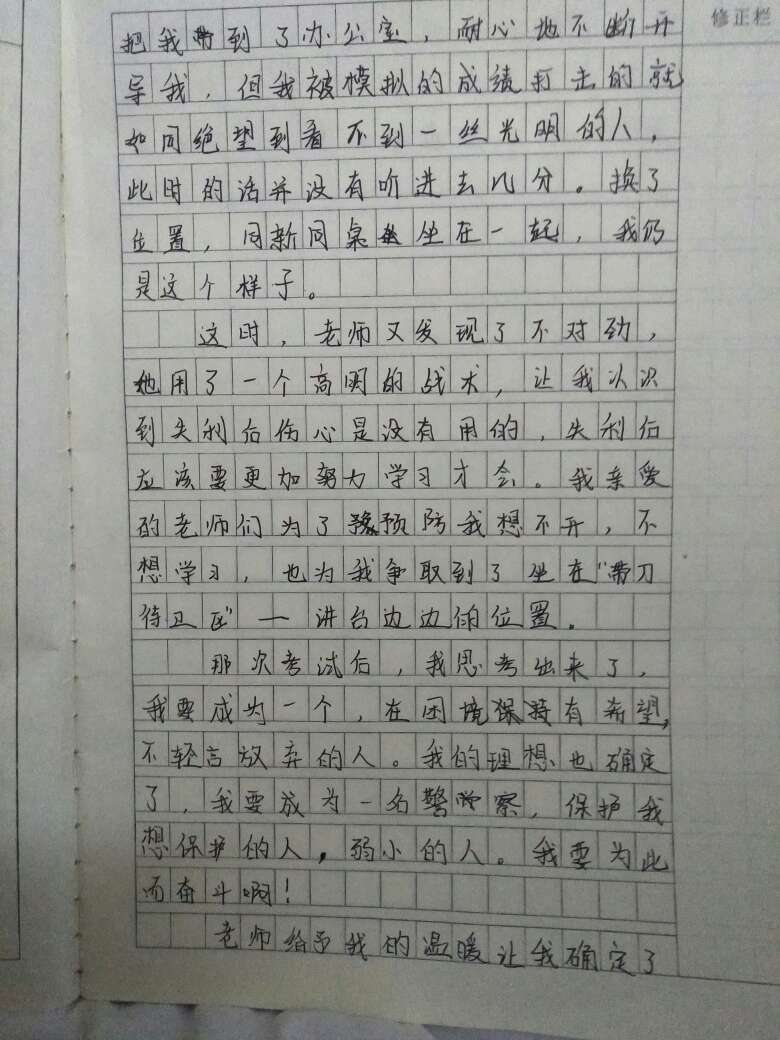 修正栏
把我带到了办公室，耐心地不断开
导我，但我被模拟的成绩打击的就
如同绝望到看不到一丝光明的人，
此时的话并没有听进去几分。换了
位置，同新同桌坐在一起，我仍
是这个样子。
这时，老师又发现了不对劲，
她用了一个高明的战术，让我认识
到失利后伤心是没有用的，失利后
应该要更加努力学习才会。我亲爱
的老师们为了预防我想不开，不
想学习，也为我争取到了坐在“带刀
待卫区”一讲台边边的位置。
那次考试后，我思考出来了，
我要成为一个，在困境保持有希望，
不轻言放弃的人。我的理想也确定
了，我要成为一名警察，保护我
想保护的人，弱小的人。我要为此
而奋斗啊！
老师给予我的温暖让我确定了